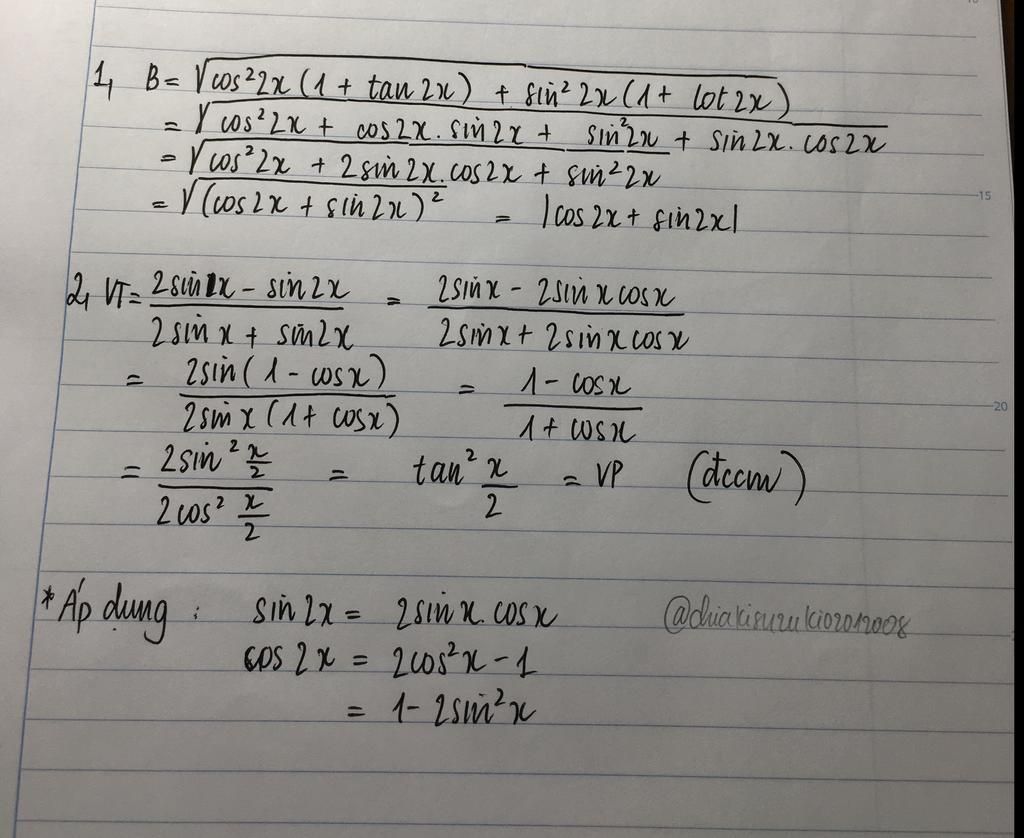 1, B = √cos²2x (1 + tan 2x) + sin² 2x (1 + cot 2x)
= √cos²2x + cos2x . sin2x + sin²2x + sin2x . cos2x
= √cos²2x + 2sin2x.cos2x + sin²2x
= √(cos2x + sin2x)² = |cos2x + sin2x|
2, VT = (2sinx - sin2x)/(2sinx + sin2x) = (2sinx - 2sinxcosx)/(2sinx + 2sinxcosx)
= 2sin(1 - cosx)/2sinx(1 + cosx) = (1 - cosx)/(1 + cosx)
= (2sin² x/2)/(2cos² x/2) = tan² x/2 = VP (đccm)
* Áp dụng : sin2x = 2sinx.cosx @chiakisuzuki02012008
cos2x = 2cos²x - 1
= 1 - 2sin²x
15
20